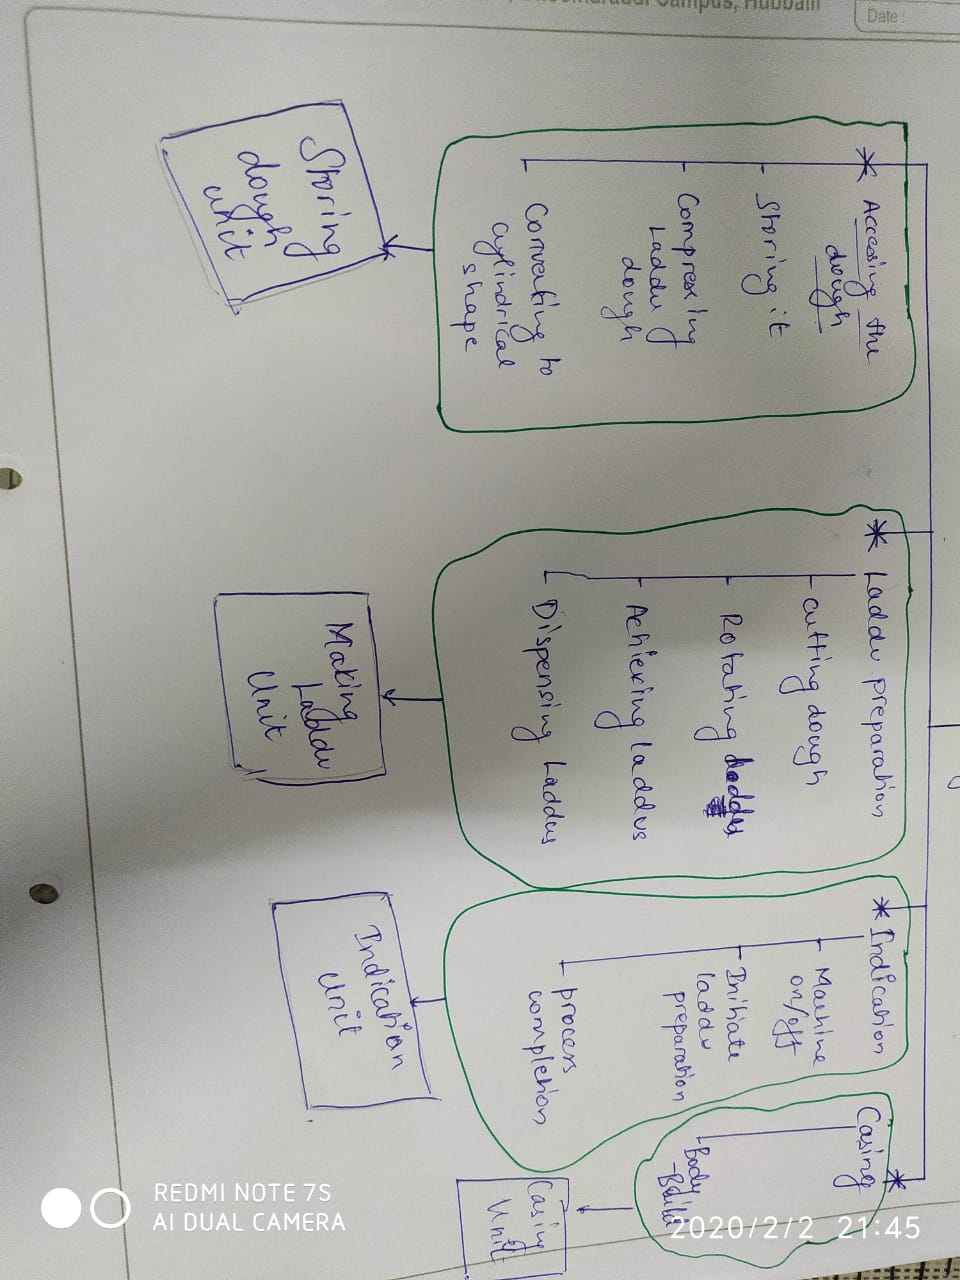 Date:
Accesing the
dough
Storing it
Compressing
Laddu
dough
Converting to
cylindrical
shape
Storing
dough
unit
Laddu preparation
cutting dough
Rotating
Achieving laddus
Dispensing Laddus
Making
Laddu
Unit
Indication
Machine
on/off
Initiate
laddu
preparation
process
completion
Indication
Unit
Casing
Body
-Build
Casing
Unit
2020/2/2 21:45
REDMI NOTE 7S
AI DUAL CAMERA